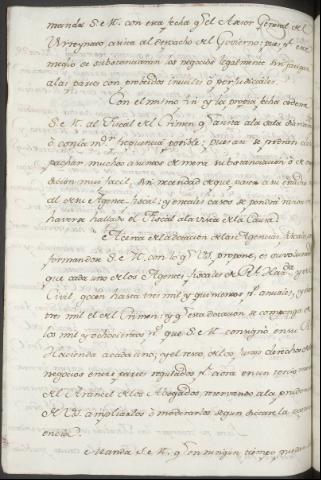 mandar S. M. con esta fecha qe. el Asesor General del
Virreynato asista al despacho del Govierno; pues pr. este
medio se substanciaran los negocios legalmente sin fatigar
a las partes con proveidos inutiles ó perjudiciales.
Con el mismo fin y en la propia fecha ordena
S. M. al Fiscal del Crimen qe. asista a la sala diariamte.
ó con la mr. frequencia posible; pues asi se podran des-
pachar muchos asuntos de mera substanciacion ó de ex-
pedicion mui facil, sin necesidad de que pasen a su
al de su Agente Fiscal; y en tales casos se pondrá razon de
haverse hallado el Fiscal a la vista de la Causa.
Acerca de la dotacion de los Agencias Fiscales con-
formandose S. M. con lo qe. VS. propone, es su voluntad
que cada uno de los Agentes fiscales de Rl. Hazda. y
Civil gocen hasta tres mil y quinientos ps. anuales, y
tres mil el del Crimen: y qe. esta dotacion se componga de
los mil y ochocientos ps. que S. M. consignó en su Rl.
Hacienda a cada uno; y el resto, de los justos derechos de los
negocios entre partes regulados pr. ahora en un tercio menos
del Arancel de los Abogados, reservando a la prudencia
de VS. ampliarlos ó moderarlos segun dictare la experi-
encia.
Manda S. M. qe. en ningun tiempo puedan